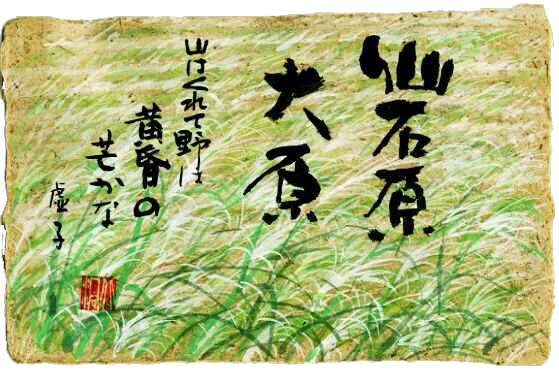 仙石原
大原
山はくれて野は
黄昏の
芒かな
虚子